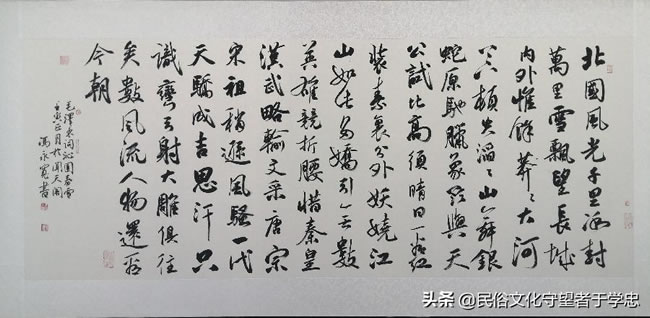 北國風光千里冰封
萬里雪飄望長城
内外惟餘莽〻大河
上下頓失滔〻山舞銀
蛇原馳臘象欲與天
公試比高須晴日看紅
裝素裹分外妖嬈江
山如此多嬌引无數
英雄競折腰惜秦皇
漢武略輸文采唐宗
宋祖稍遜風騷一代
天驕成吉思汗只
識彎弓射大雕俱往
矣數風流人物還看
今朝
毛澤東词沁園春雪
壬寅正月於聞天閣
馮永寬書
头条 @民俗文化守望者于学忠